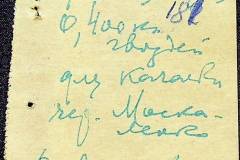 182
0,400 кг
гвоздей
для качалки
чер. Моска-
ленко